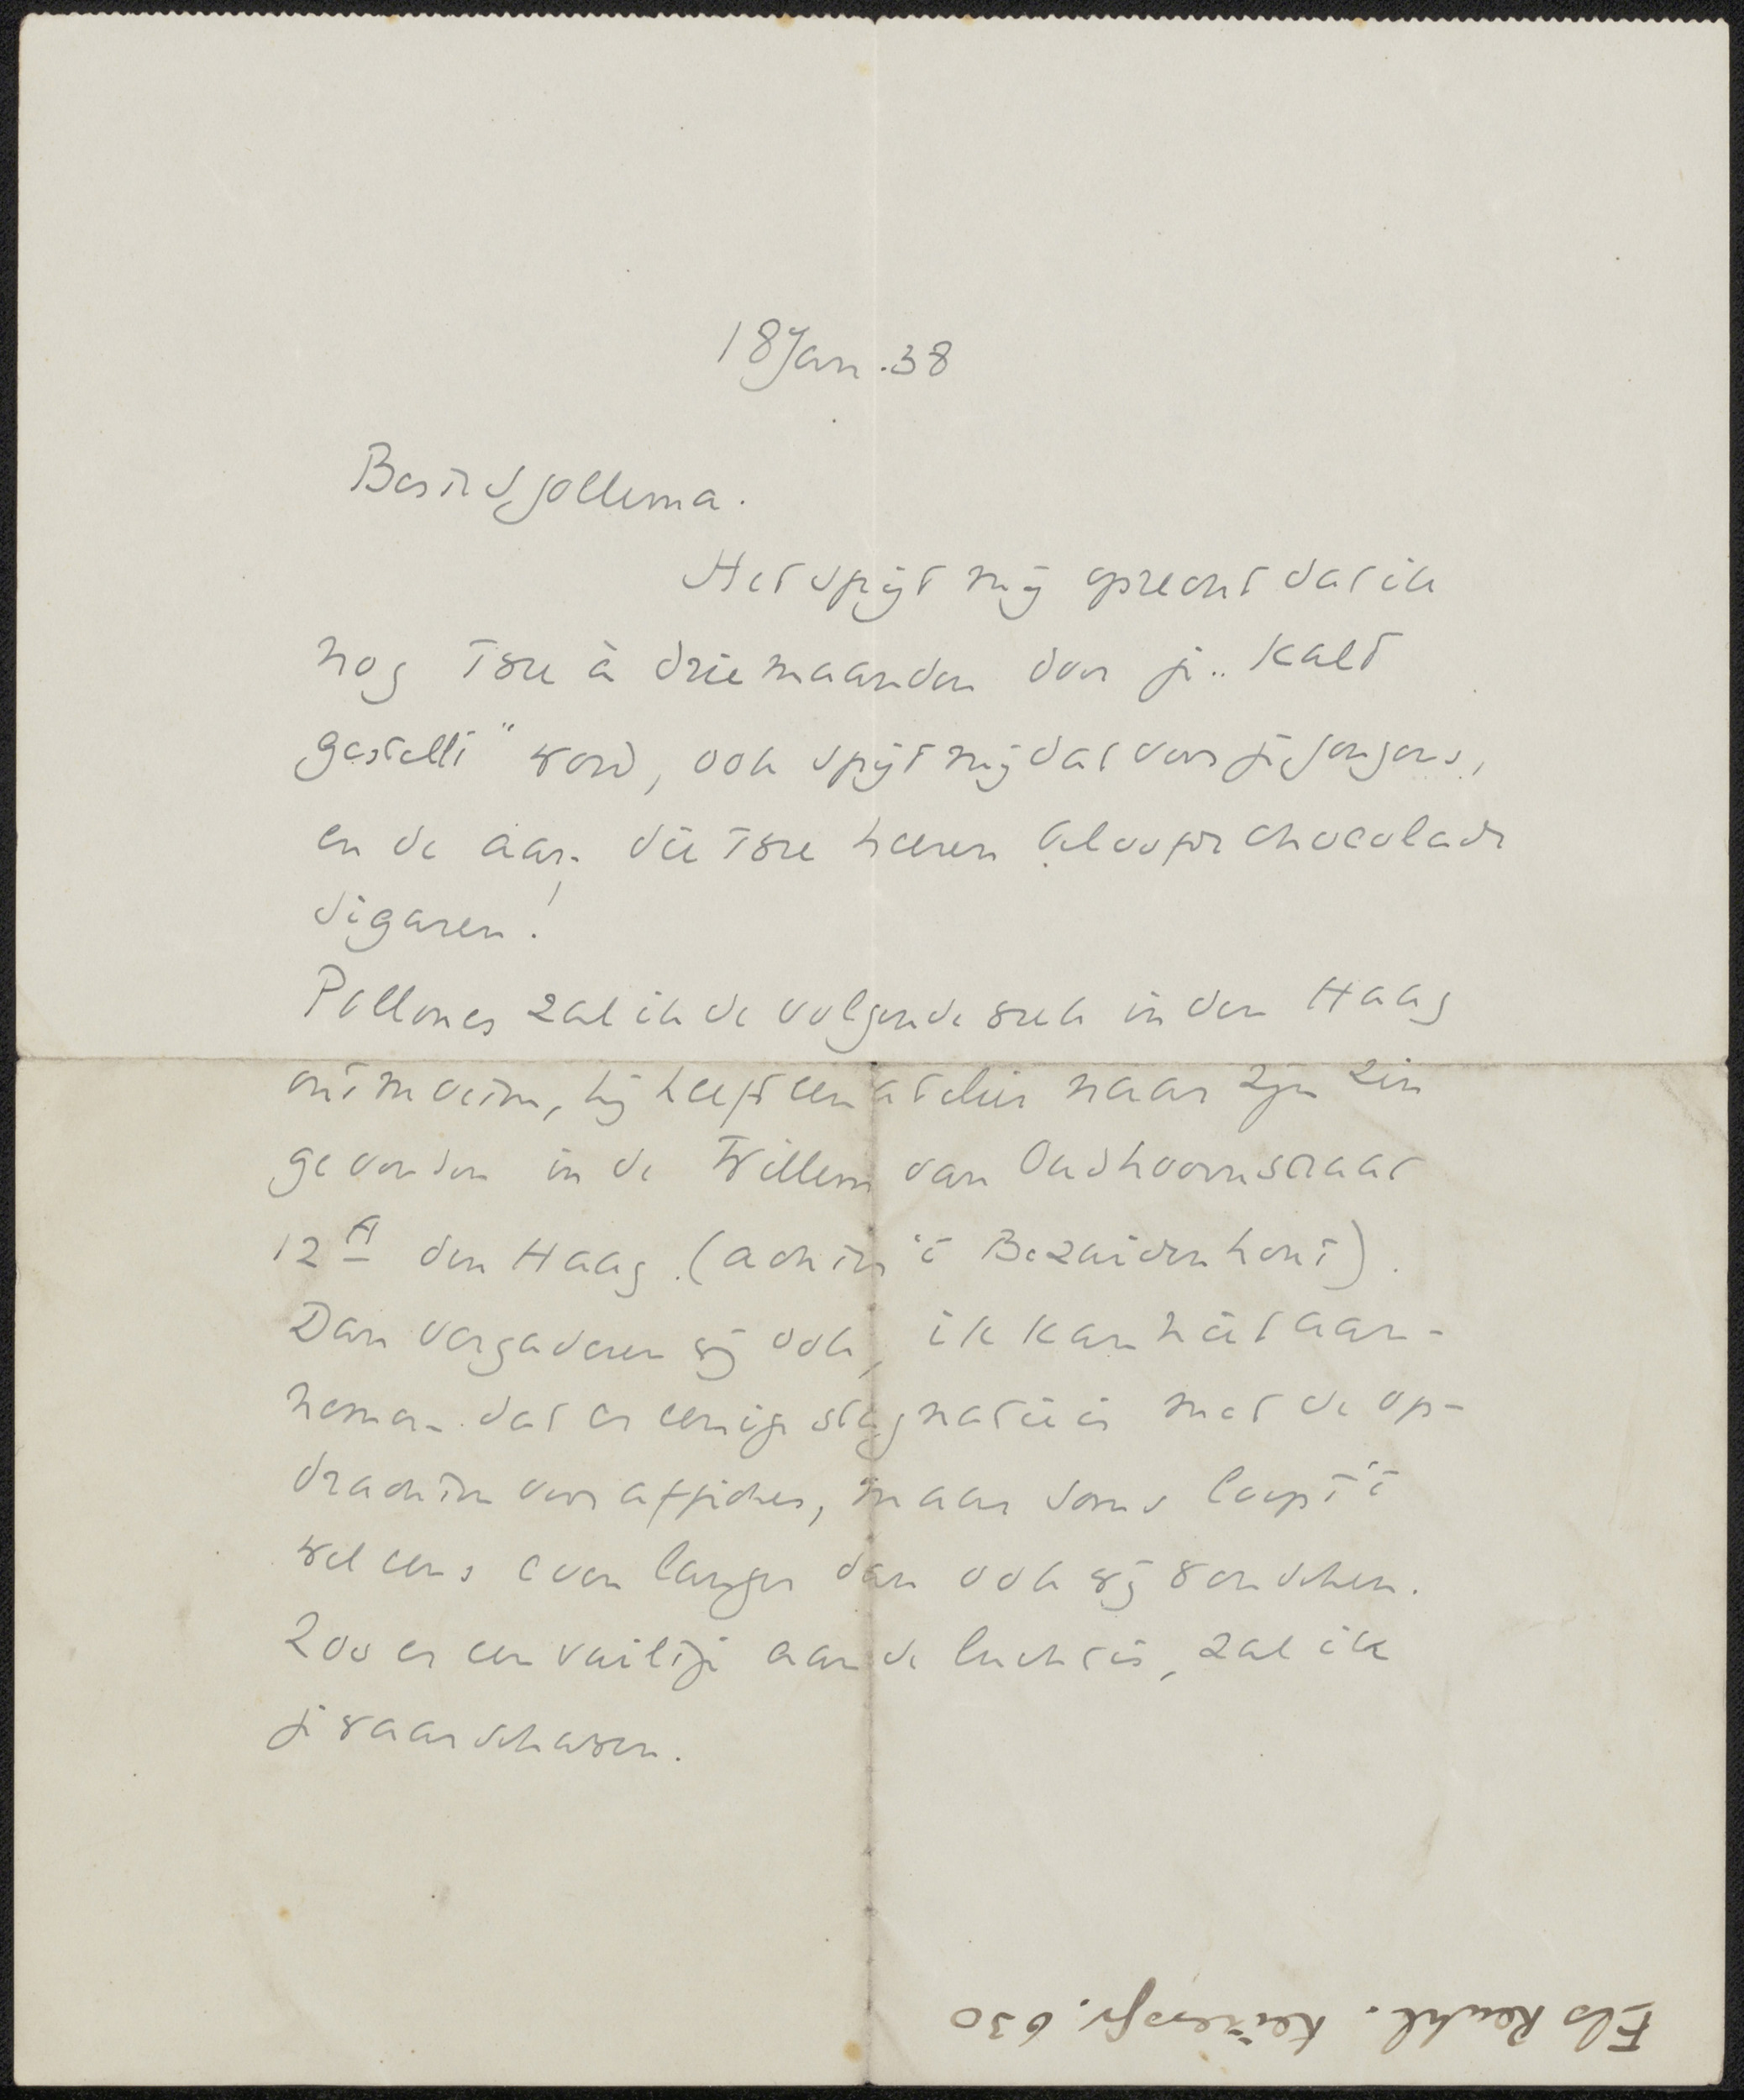 18 Jan. 38
Beste Sjollema.
Het spijt mij oprecht dat ik
nog twee à drie maanden door je „Kalt
gestellt" word, ook spijt mij dat voor je jongens,
en de aan die twee heeren beloofde chocolade
sigaren!
Pollones zal ik de volgende week in den Haag
ontmoeten, hij heeft een atelier naar zijn zin
gevonden in de Willem van Oudhoornstraat
12A den Haag. (achter 't Bezuidenhout).
Dan vergaderen wij ook, ik kan niet aan-
nemen dat er eenige stagnatie is met de op-
drachten voor affiches, maar soms loopt 't
wel eens even langer dan ook wij wenschen.
Zoo er een vuiltje aan de lucht is, zal ik
je waarschuwen.
Els Keizersgr. 630